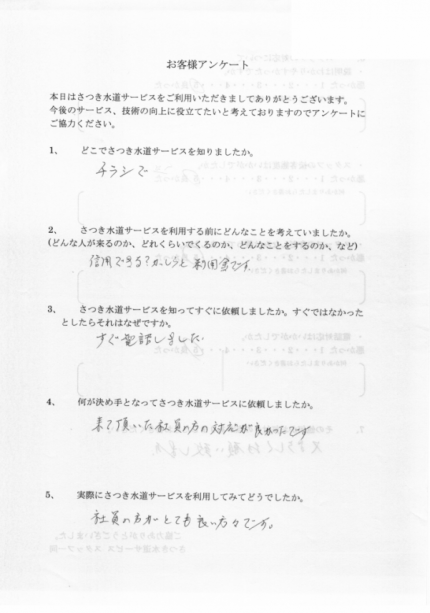 お客様アンケート
本日はさつき水道サービスをご利用いただきましてありがとうございます。
今後のサービス、技術の向上に役立てたいと考えておりますのでアンケートに
ご協力ください。
1、 どこでさつき水道サービスを知りましたか。
チラシで
2、 さつき水道サービスを利用する前にどんなことを考えていましたか。
(どんな人が来るのか、どれくらいでくるのか、どんなことをするのか、など)
信用できる?かしらと
3、 さつき水道サービスを知ってすぐに依頼しましたか。すぐではなかった
としたらそれはなぜですか。
すぐ電話しました
4、 何が決め手となってさつき水道サービスに依頼しましたか。
来て頂いた社員の方の対応が良かったです
5、 実際にさつき水道サービスを利用してみてどうでしたか。
社員の方がとても良い方々です。